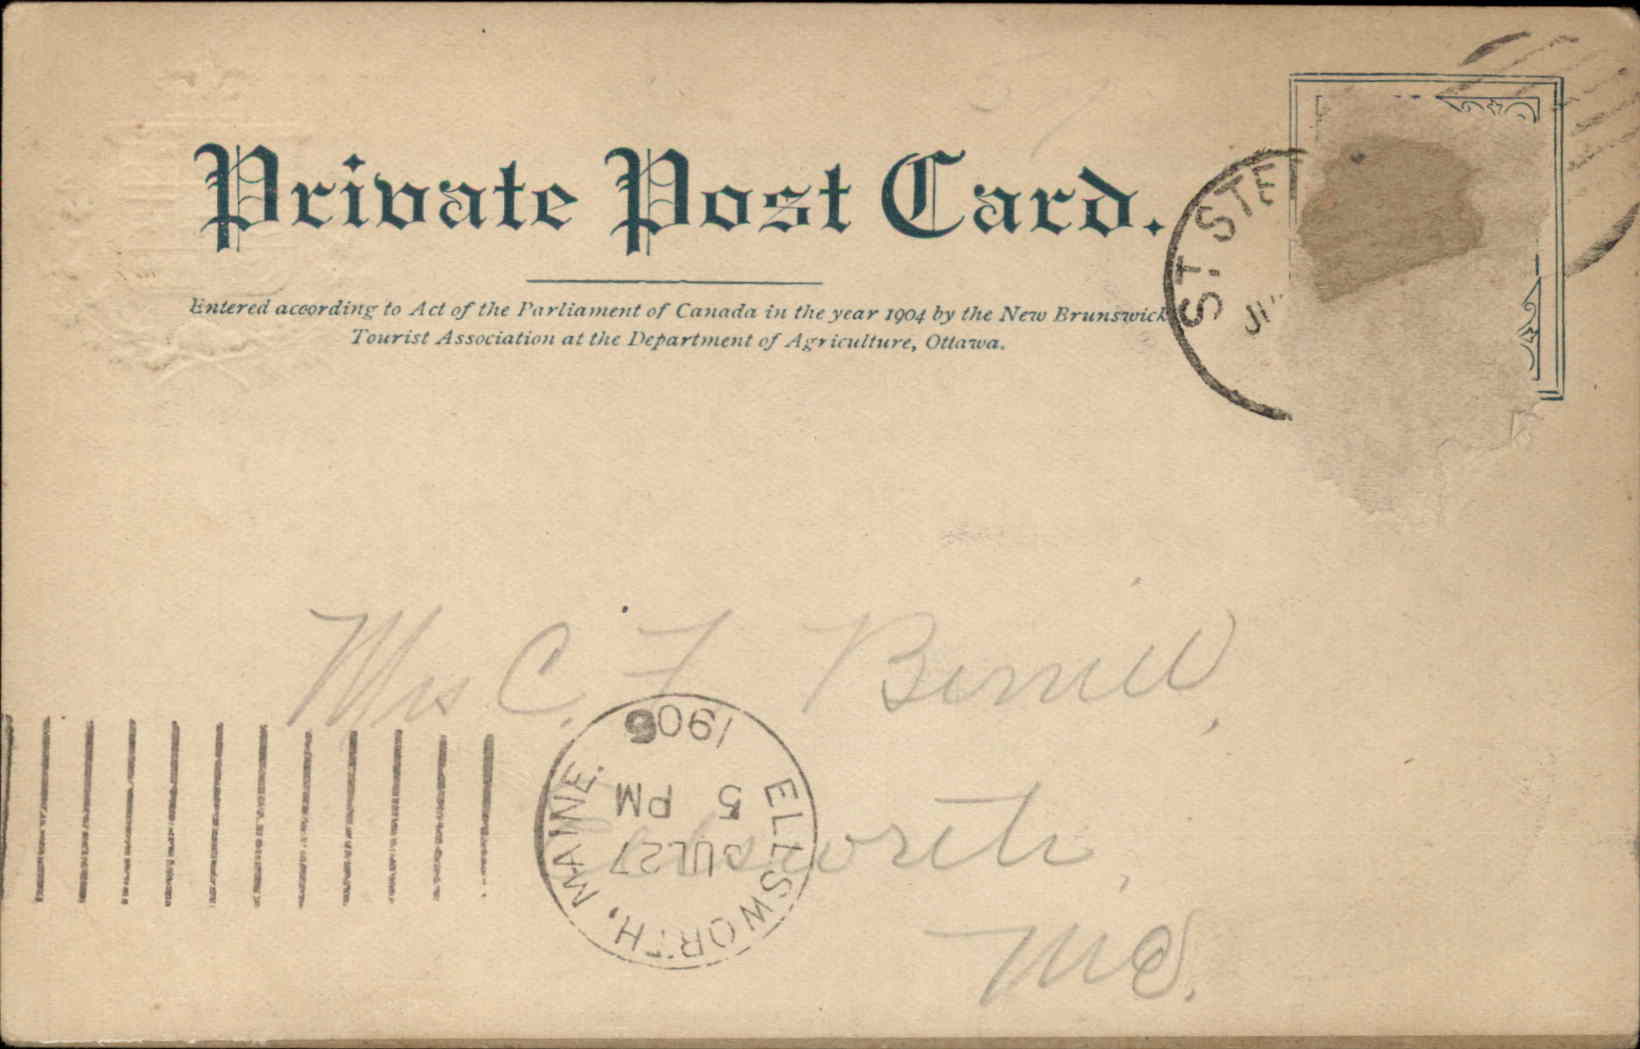 Private Post Card.
Entered according to Act of the Parliament of Canada in the year 1904 by the New Brunswick
Tourist Association at the Department of Agriculture, Ottawa.
ST. STE
Mrs C. F Berrill,
ELLSWORTH, MAINE.
JUL 27
5 PM
1906
Me.